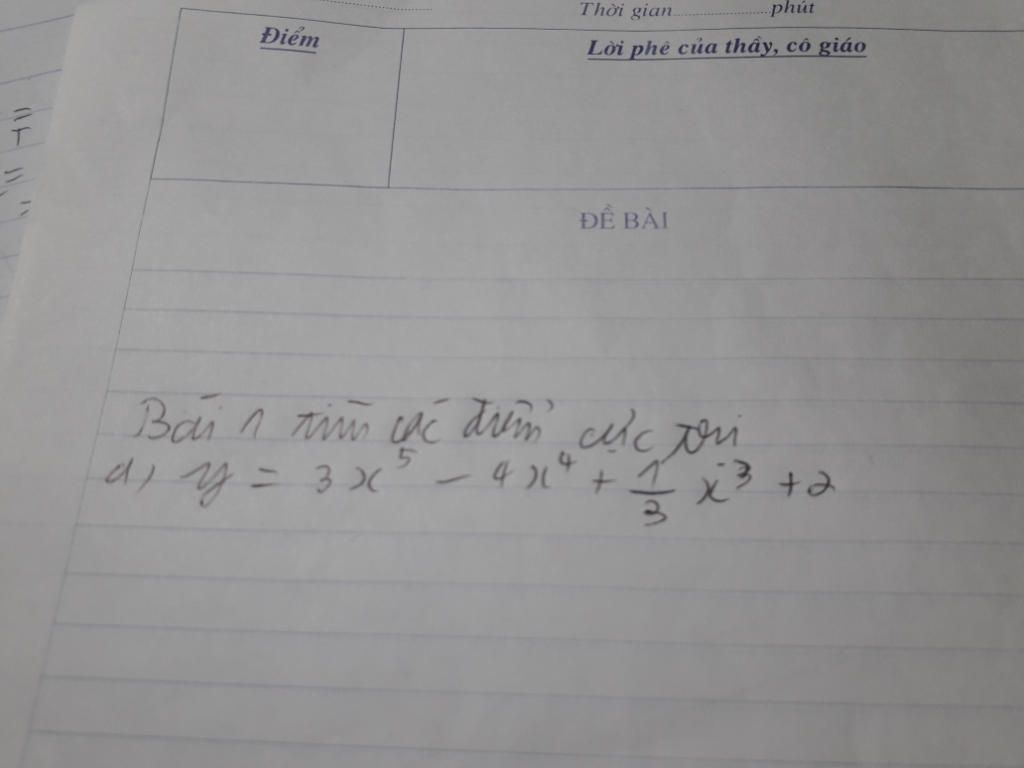 Thời gian....................phút
Điểm
Lời phê của thầy, cô giáo
ĐỀ BÀI
Bài 1 tìm các điểm cực trị
a) y = 3x⁵ - 4x⁴ + 1/3 x³ + 2